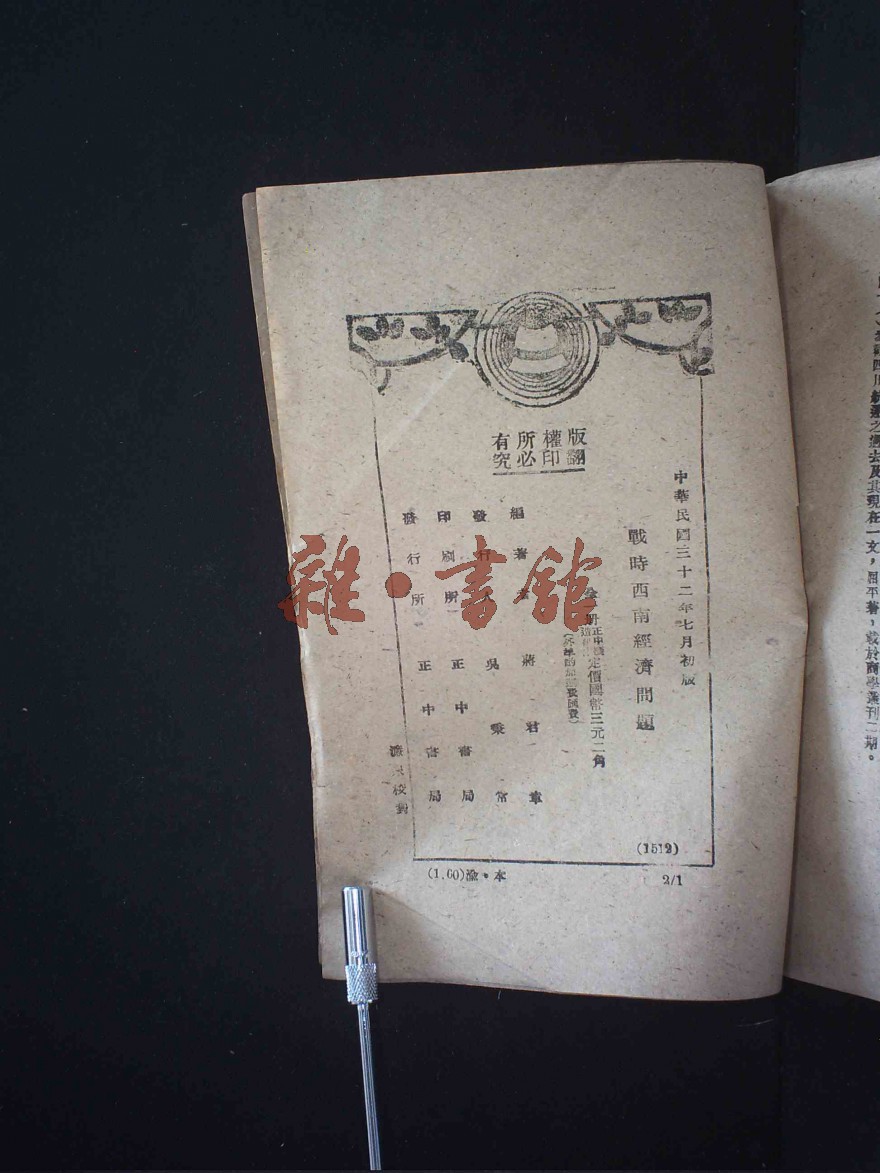 中華民國三十二年七月初版
戰時西南經濟問題
全 册 正中 定價國幣三元二角
(外埠酌加 費匯費)
版權所有
翻印必究
編著 者 蔣君章
發行人 吳秉常
印刷所 正中書局
發行所 正中書局
校對
(1512)
2/1
(1.60)渝・本
為 四川 之過去及其現在一文，屈平著，載於商學叢刊二期。
雜・書館